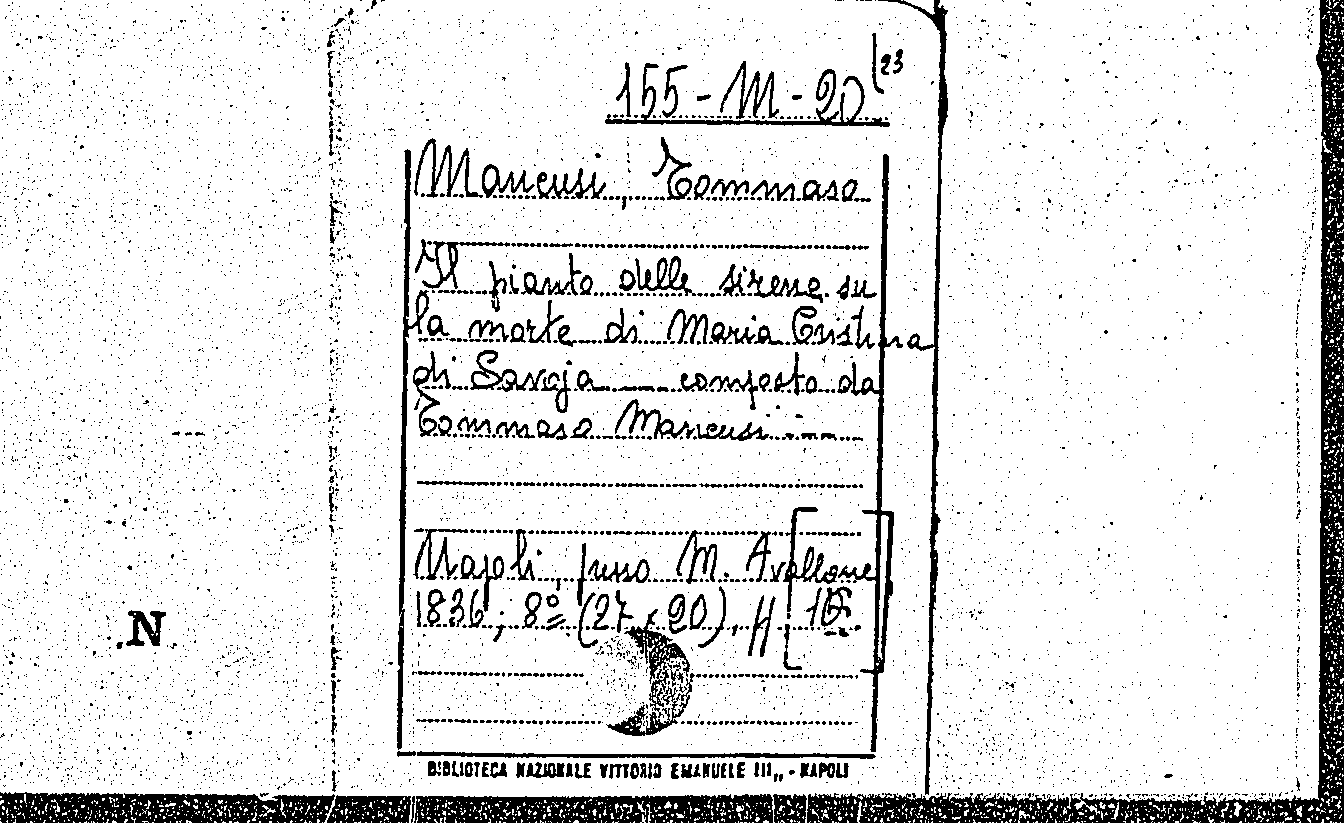 155-M-20 23
Mancusi, Tommaso
Il pianto delle sirene su
la morte di Maria Cristina
di Savoja — composto da
Tommaso Mancusi ....
Napoli, presso M. Avallone
1836; 8º (27 x 20), ff [16].
N
BIBLIOTECA NAZIONALE VITTORIO EMANUELE III,, - NAPOLI